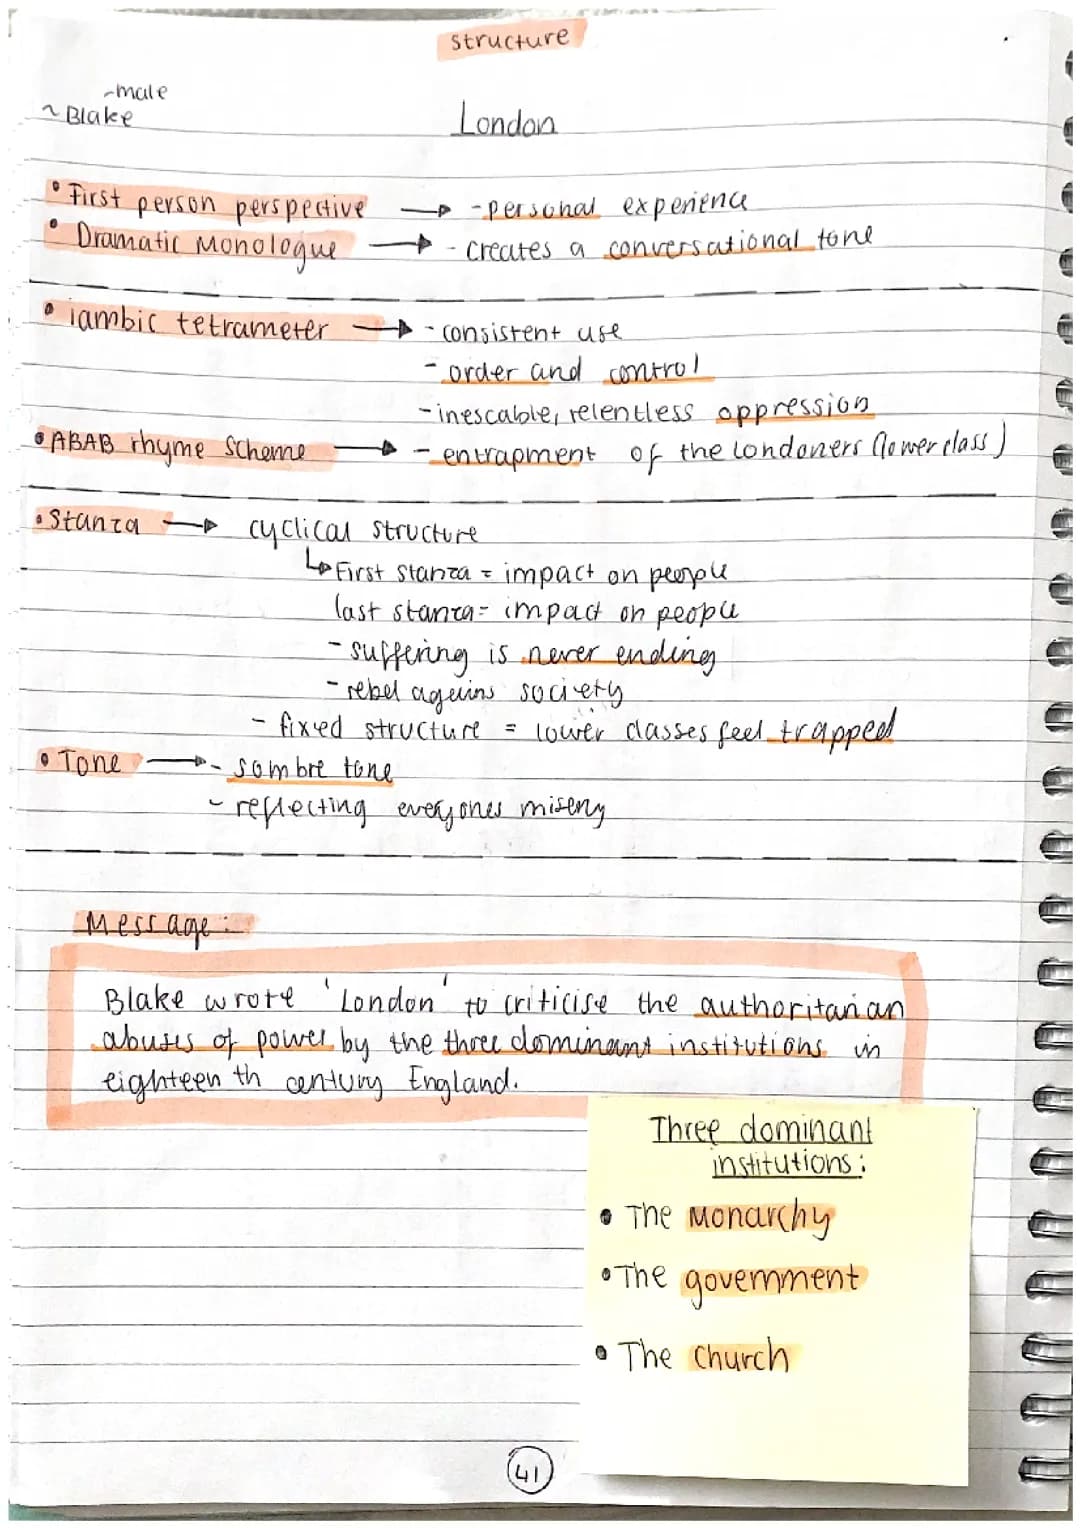 structure
-male
~ Blake
London
• First person perspective → - personal experience
• Dramatic Monologue → - creates a conversational tone
• iambic tetrameter → - consistent use
- order and control
- inescable, relentless oppression
• ABAB rhyme Scheme → - entrapment of the Londoners (lower class)
• Stanza → cyclical structure
↳ First stanza = impact on people
last stanza = impact on people
- suffering is never ending
- rebel ageins society
- fixed structure = lower classes feel trapped
• Tone → - sombre tone
- reflecting everyones misery
Message:
Blake wrote 'London' to criticise the authoritarian
abuses of power by the three dominant institutions in
eighteenth century England.
Three dominant
institutions:
• The Monarchy
• The government
• The Church
41